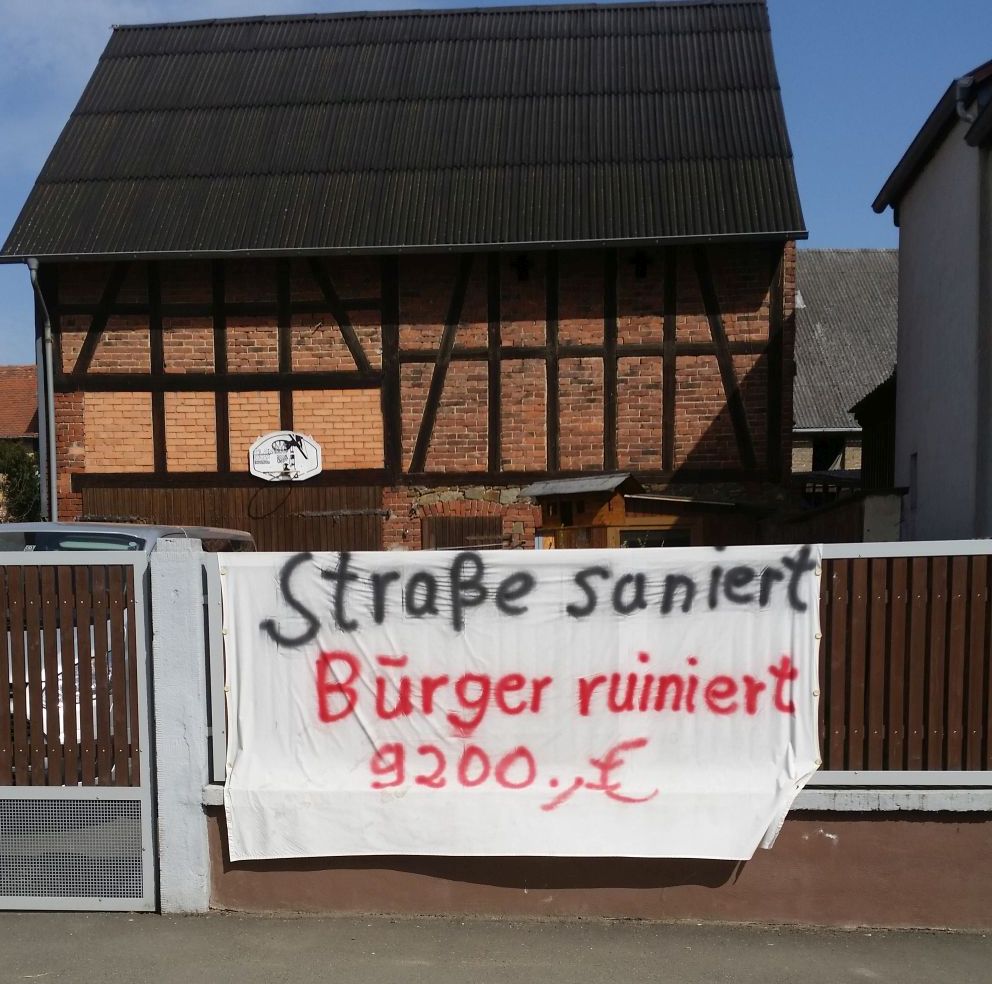 Straße saniert
Bürger ruiniert
9200.,£